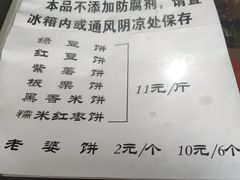 本品不添加防腐剂，请置
冰箱内或通风阴凉处保存
绿豆饼
红豆饼
紫薯饼
板栗饼
黑香米饼
糯米红枣饼
11元/斤
老婆饼 2元/个 10元/6个